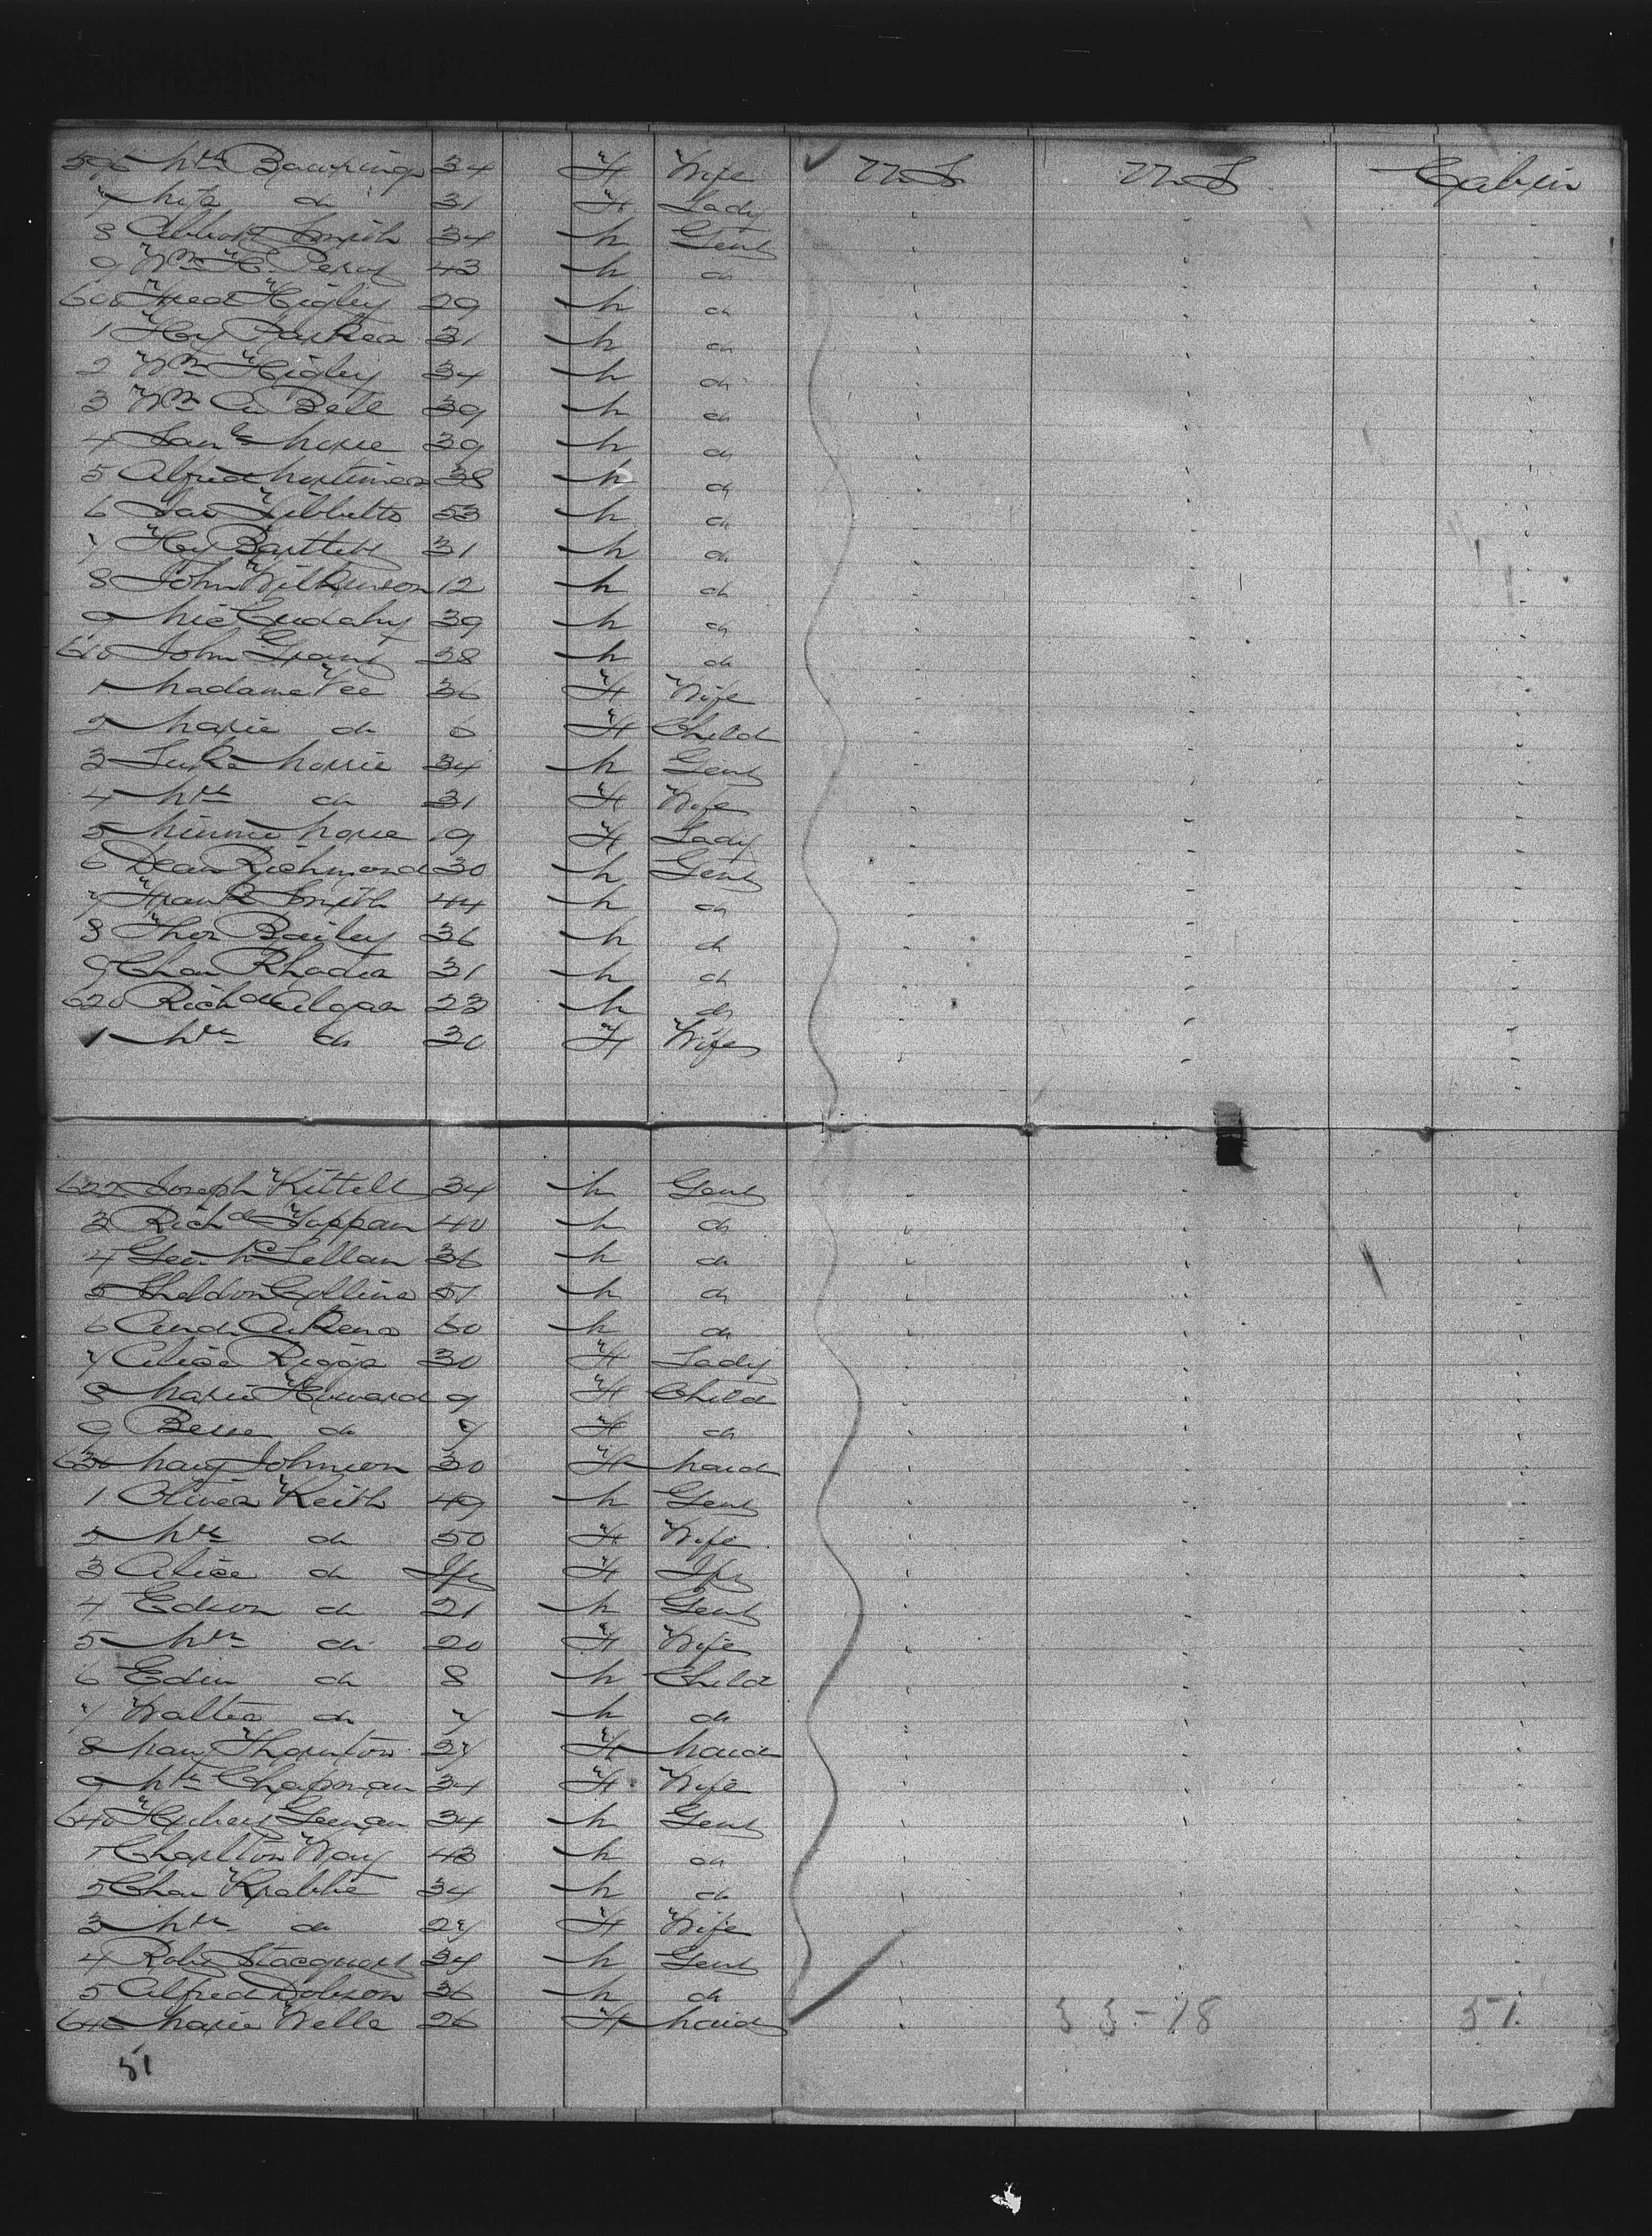 596 Mrs Bowring 34 F Wife U S U S Cabin
7 Nita do 31 F Lady
8 Abbott Smith 34 M Gent
9 Wm H. Percy 43 M do
600 Fred Higley 29 M do
1 Hy Parker 31 M do
2 Wm Higley 34 M do
3 Wm A Bell 39 M do
4 Saml 39 M do
5 Alfred Mortimer 38 M do
6 Tibbetts 53 M do
7 Hy Bartlett 31 M do
8 John Wilkinson 12 M do
9 Mic Cudahy 39 M do
610 John Grant 28 M do
1 Madame Vee 36 F Wife
2 Marie do 6 F Child
3 Luke Morris 34 M Gent
4 Mrs do 31 F Wife
5 Minnie 19 F Lady
6 Dean Richmond 30 M Gent
7 Frank Smith 44 M do
8 Thos Bailey 36 M do
9 Chas Rhades 31 M do
620 Richd Alger 22 M do
1 Mrs do 20 F Wife
622 Joseph Kittell 34 M Gent
3 Richd Tappan 40 M do
4 Geo. McLellan 36 M do
5 Sheldon Collins 51 M do
6 Andr Aikens 60 M do
7 Alice Riggs 30 F Lady
8 Marie Howard 9 F Child
9 do 7 F do
630 Mary Johnson 30 F Maid
1 Oliver Keith 49 M Gent
2 Mrs do 50 F Wife
3 Alice do F
4 Edson do 21 M Gent
5 Mrs do 20 F Wife
6 Edin do 8 M Child
7 Walter do 7 M do
8 Mary Thornton 27 F Maid
9 Mrs Chapman 34 F Wife
640 Hubert 34 M Gent
1 Charlton Way 43 M do
2 Chas Krabbe 34 M do
3 Mrs do 27 F Wife
4 Robt Stocquart 34 M Gent
5 Alfred Dobson 36 M do
646 Marie Welle 26 F Maid 33-18 51
51